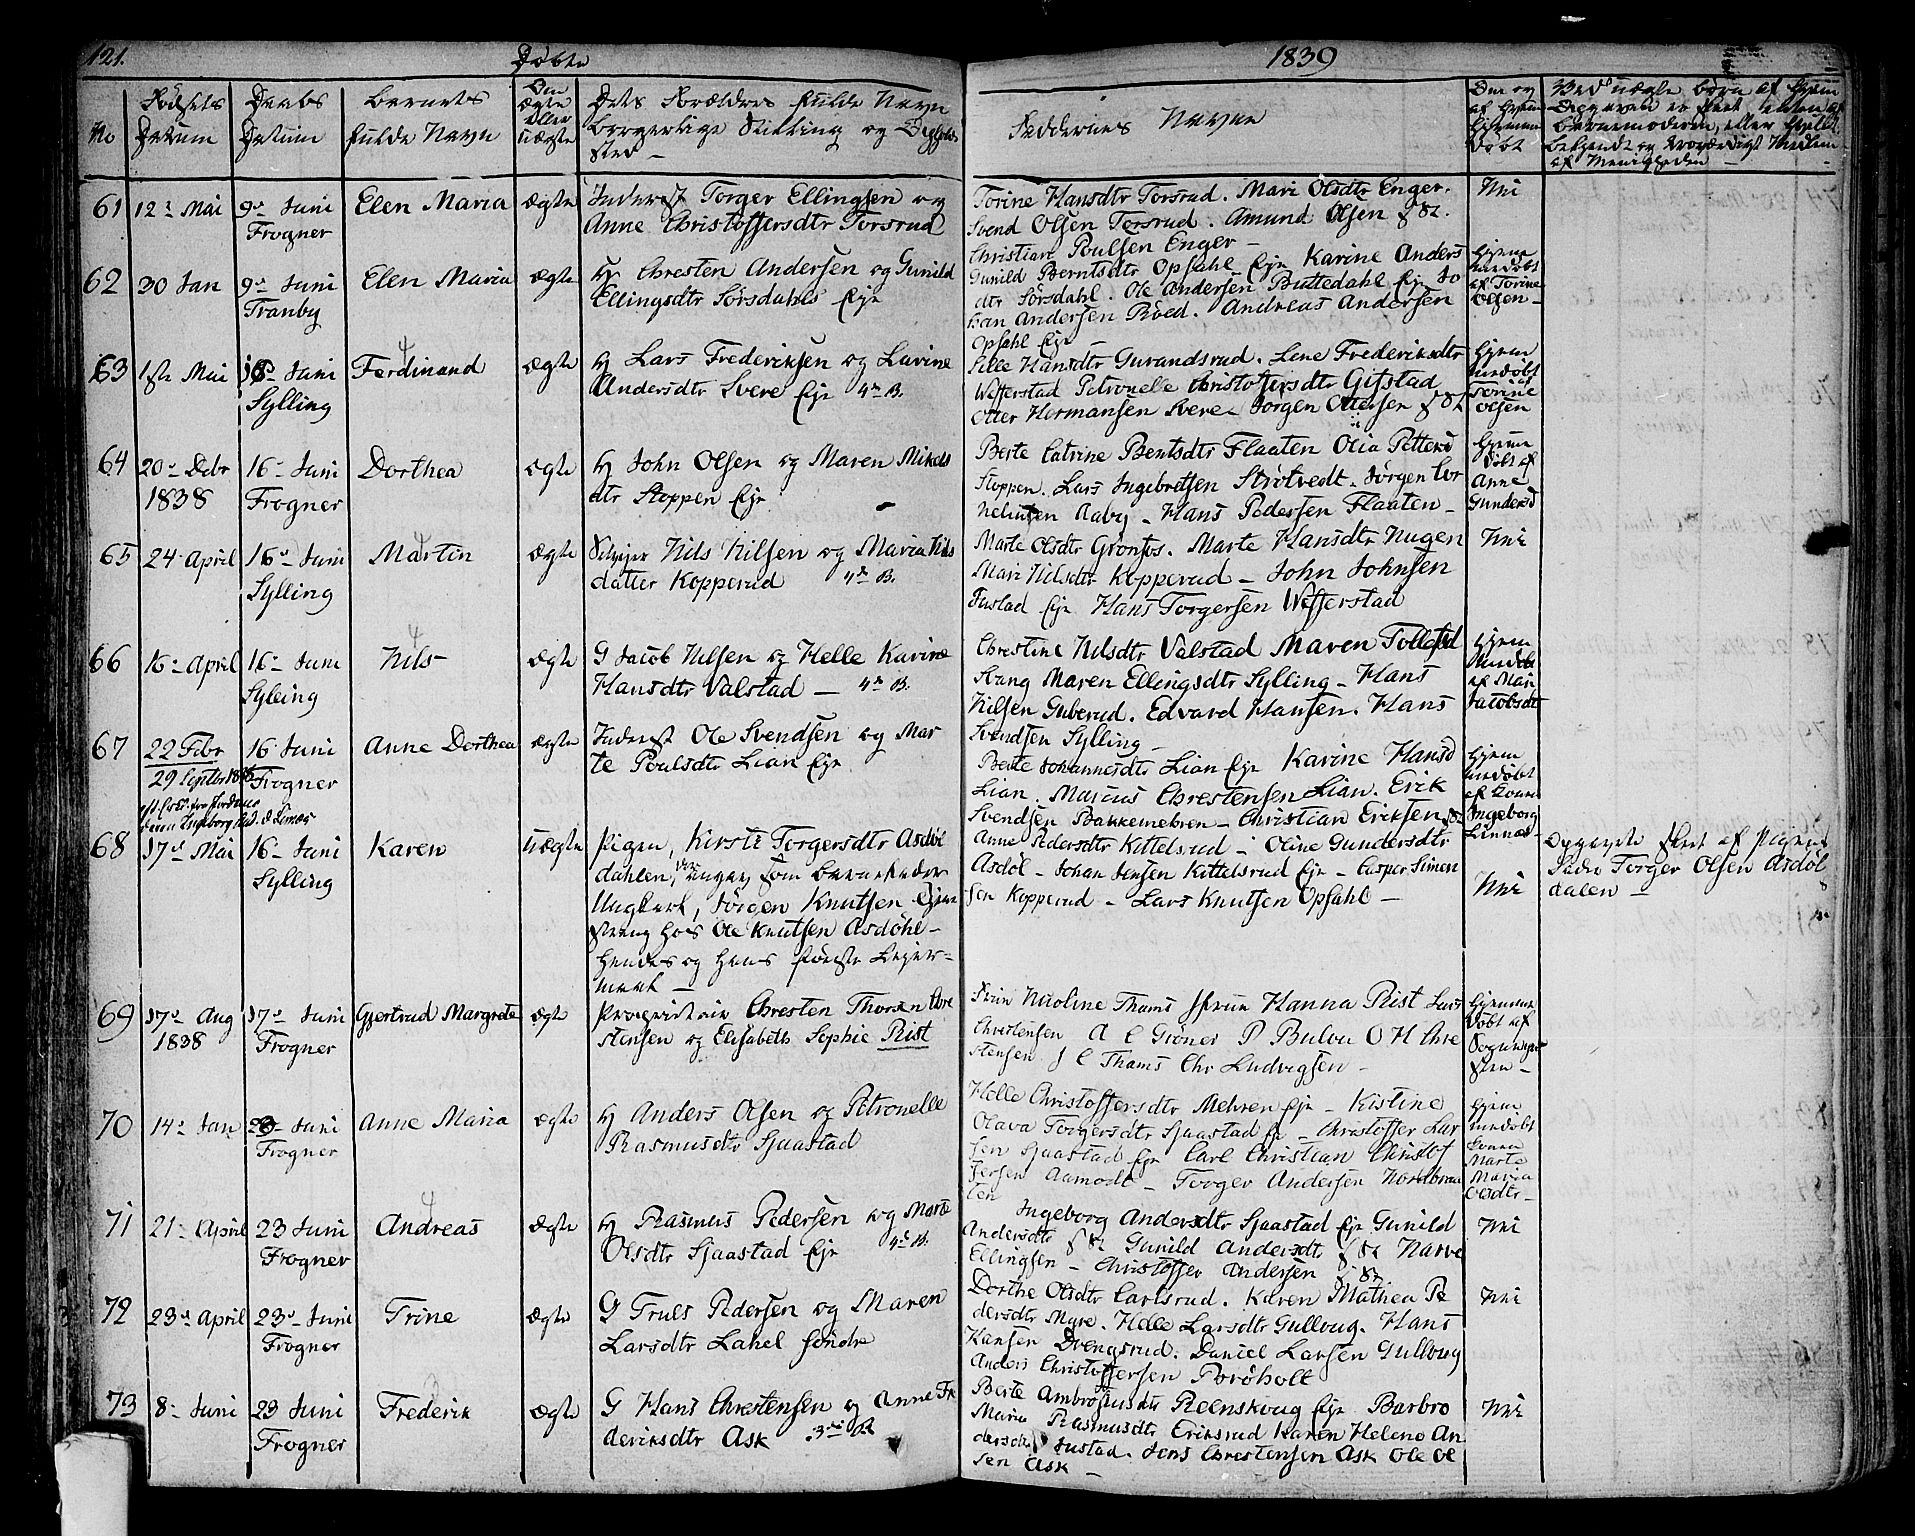 121.
Döbte
1839
No
Födsels
Datum
Daabs
Datum
Barnets
fulde Navn
Om
ægte
eller
uægte
Dets Forældres fulde Navn
borgerlige Stilling og
sted —
Faddernes Navne
Ved uægte börn af hvem
61 12te Mai 9de Juni Elen Maria ægte Inderst Torger Ellingsen og
Frogner Anne Christoffersdtr Torsrud
Torine Hansdtr Torsrud. Mari Olsdtr Enger. Nei
Svend Olsen Torsrud. Amund Olsen
Christian Poulsen Enger —
62 30 Jan 9de Juni Elen Maria ægte Chresten Andersen og Gunild
Tranby Ellingsdtr Sörsdahls Eje
Gunild Berntsdtr Opsahl Eje Karine Anders
dtr Sörsdahl. Ole Andersen Buttedahl Eje Jo
han Andersen Röed. Andreas Andersen
Opsahl Eje
Hjem
medöbt
af Torine
Olsen —
63 1ste Mai 16 Juni Ferdinand ægte Lars Frederiksen og Lavine
Sylling Andersdtr Svere Eje 4de B.
4
Sille Hansdtr Gurandsrud. Lene Frederiksdtr
Wefferstad Petronelle Christoffersdtr Gifstad
Otter Hermansen Svere — Jörgen Ottersen
Hjem
medöbt
af
Torine
Olsen
64 20de Debr 16 Juni Dorthea ægte John Olsen og Maren Mikels
1838 Frogner dtr Stoppen Eje
Berte Catrine Bentsdtr Flaaten Olia Petters
Stoppen. Lars Ingebretsen Strötvedt. Jörgen Cor
nelius­sen Aaby — Hans Pedersen Flaaten —
Hjeme
döbt af
Anne
Gundersd
65 24 April 16de Juni Martin ægte Nils Nilsen og Maria Nils
Sylling datter Kopperud 4de B.
4
Marte Olsdtr Grönfos. Marte Hansdtr Hugen Nei
Mari Nilsdtr Kopperud — John Johnsen
Justad Eje Hans Torgersen Wefferstad
66 16 April 16 Juni Nils ægte G Jacob Nilsen og Helle Karine
Sylling Hansdtr Valstad — 4de B.
4
Christine Nilsdtr Valstad Maren
Stang Maren Ellingsdtr Sylling — Hans
Nilsen Guberud. Edvard Hansen. Hans
Svendsen Sylling —
Hjem
medöbt
af Mari
Jacobsdtr
67 22 Febr 16 Juni Anne Dorthea ægte Inderst Ole Svendsen og Mar
Frogner te Poulsdtr Lian Eje
Berte Johannesdtr Lian Eje Karine Hansd
Lian. Marcus Chrestensen Lian. Erik
Svendsen Bakkemehren — Christian Eriksen
Hjem
medöbt
af
Ingeborg
Linnæs —
68 17de Mai 16 Juni Karen uægte Pigen, Kirsti Torgersdtr Asdöl
Sylling dahlen,
Ungkarl, Jörgen Knutsen
hos Ole Knutsen Asdöhl —
Hendes og hans förste Lejer-
maal —
Anne Pedersdtr Kittelsrud — Oline Gundersdtr
Asdöl — Johan Jensen Kittelsrud Eje — Casper Simen
sen Kopperud — Lars Knutsen Opsahl —
Nei
Opgavet skeet af Pigens
Fader Torger Olsen Asdöl
dalen —
69 17de Aug 17de Juni Gjertrud Margrete ægte Proprietair Chresten Thorsen Chre
1838 Frogner stensen og Elisabeth Sophie Rist
Fru Nicoline Thams Fru Hanna Rist Lars
Chrestensen A C Gröner P Bulou O H Chre
stensen J C Thams Chr Ludvigsen —
Hjemme
döbt af
Sognepre
sten —
70 14 Jan 23 Juni Anne Maria ægte Anders Olsen og Petronelle
Frogner Rasmusdtr Sjaastad
Helle Christoffersdtr Mehren Eje — Kistine
Olava Torgersdtr Sjaastad Eje — Christoffer Lar
sen Sjaastad Eje Carl Christian Christof
fersen Aamodt — Torger Andersen Nordbraa
ten
Hjem
medöbt
Marte
Maria
Olsdtr —
71 21 April 23 Juni Andreas ægte Rasmus Pedersen og Mari
Frogner Olsdtr Sjaastad Eje 4de B.
4
Ingeborg Andersdtr Sjaastad Eje Gunild Nei
Andersdtr Gunild Andersdtr Narve
Ellingsen — Christoffer Andersen
72 23de April 23de Juni Trine ægte G Truls Pedersen og Maren
Frogner Larsdtr Lahel söndre
Dorthe Olsdtr Carlsrud. Karen Mathea Pe Nei
dersdtr Myre. Helle Larsdtr Gulloug. Hans
Hansen Drengsrud. Daniel Larsen Gulloug
Anders Christoffersen Poröholt
73 8 Juni 23 Juni Frederik ægte G Hans Chrestensen og Anne Fr
Frogner deriksdtr Ask 3die B
3
Berte Ambrosiusdtr Reenskoug Eje Barbro Nei
Maria Rasmusdtr Eriksrud Karen Helene An
dersdtr Justad. Jens Chrestensen Ask Ole Ol
sen Ask —